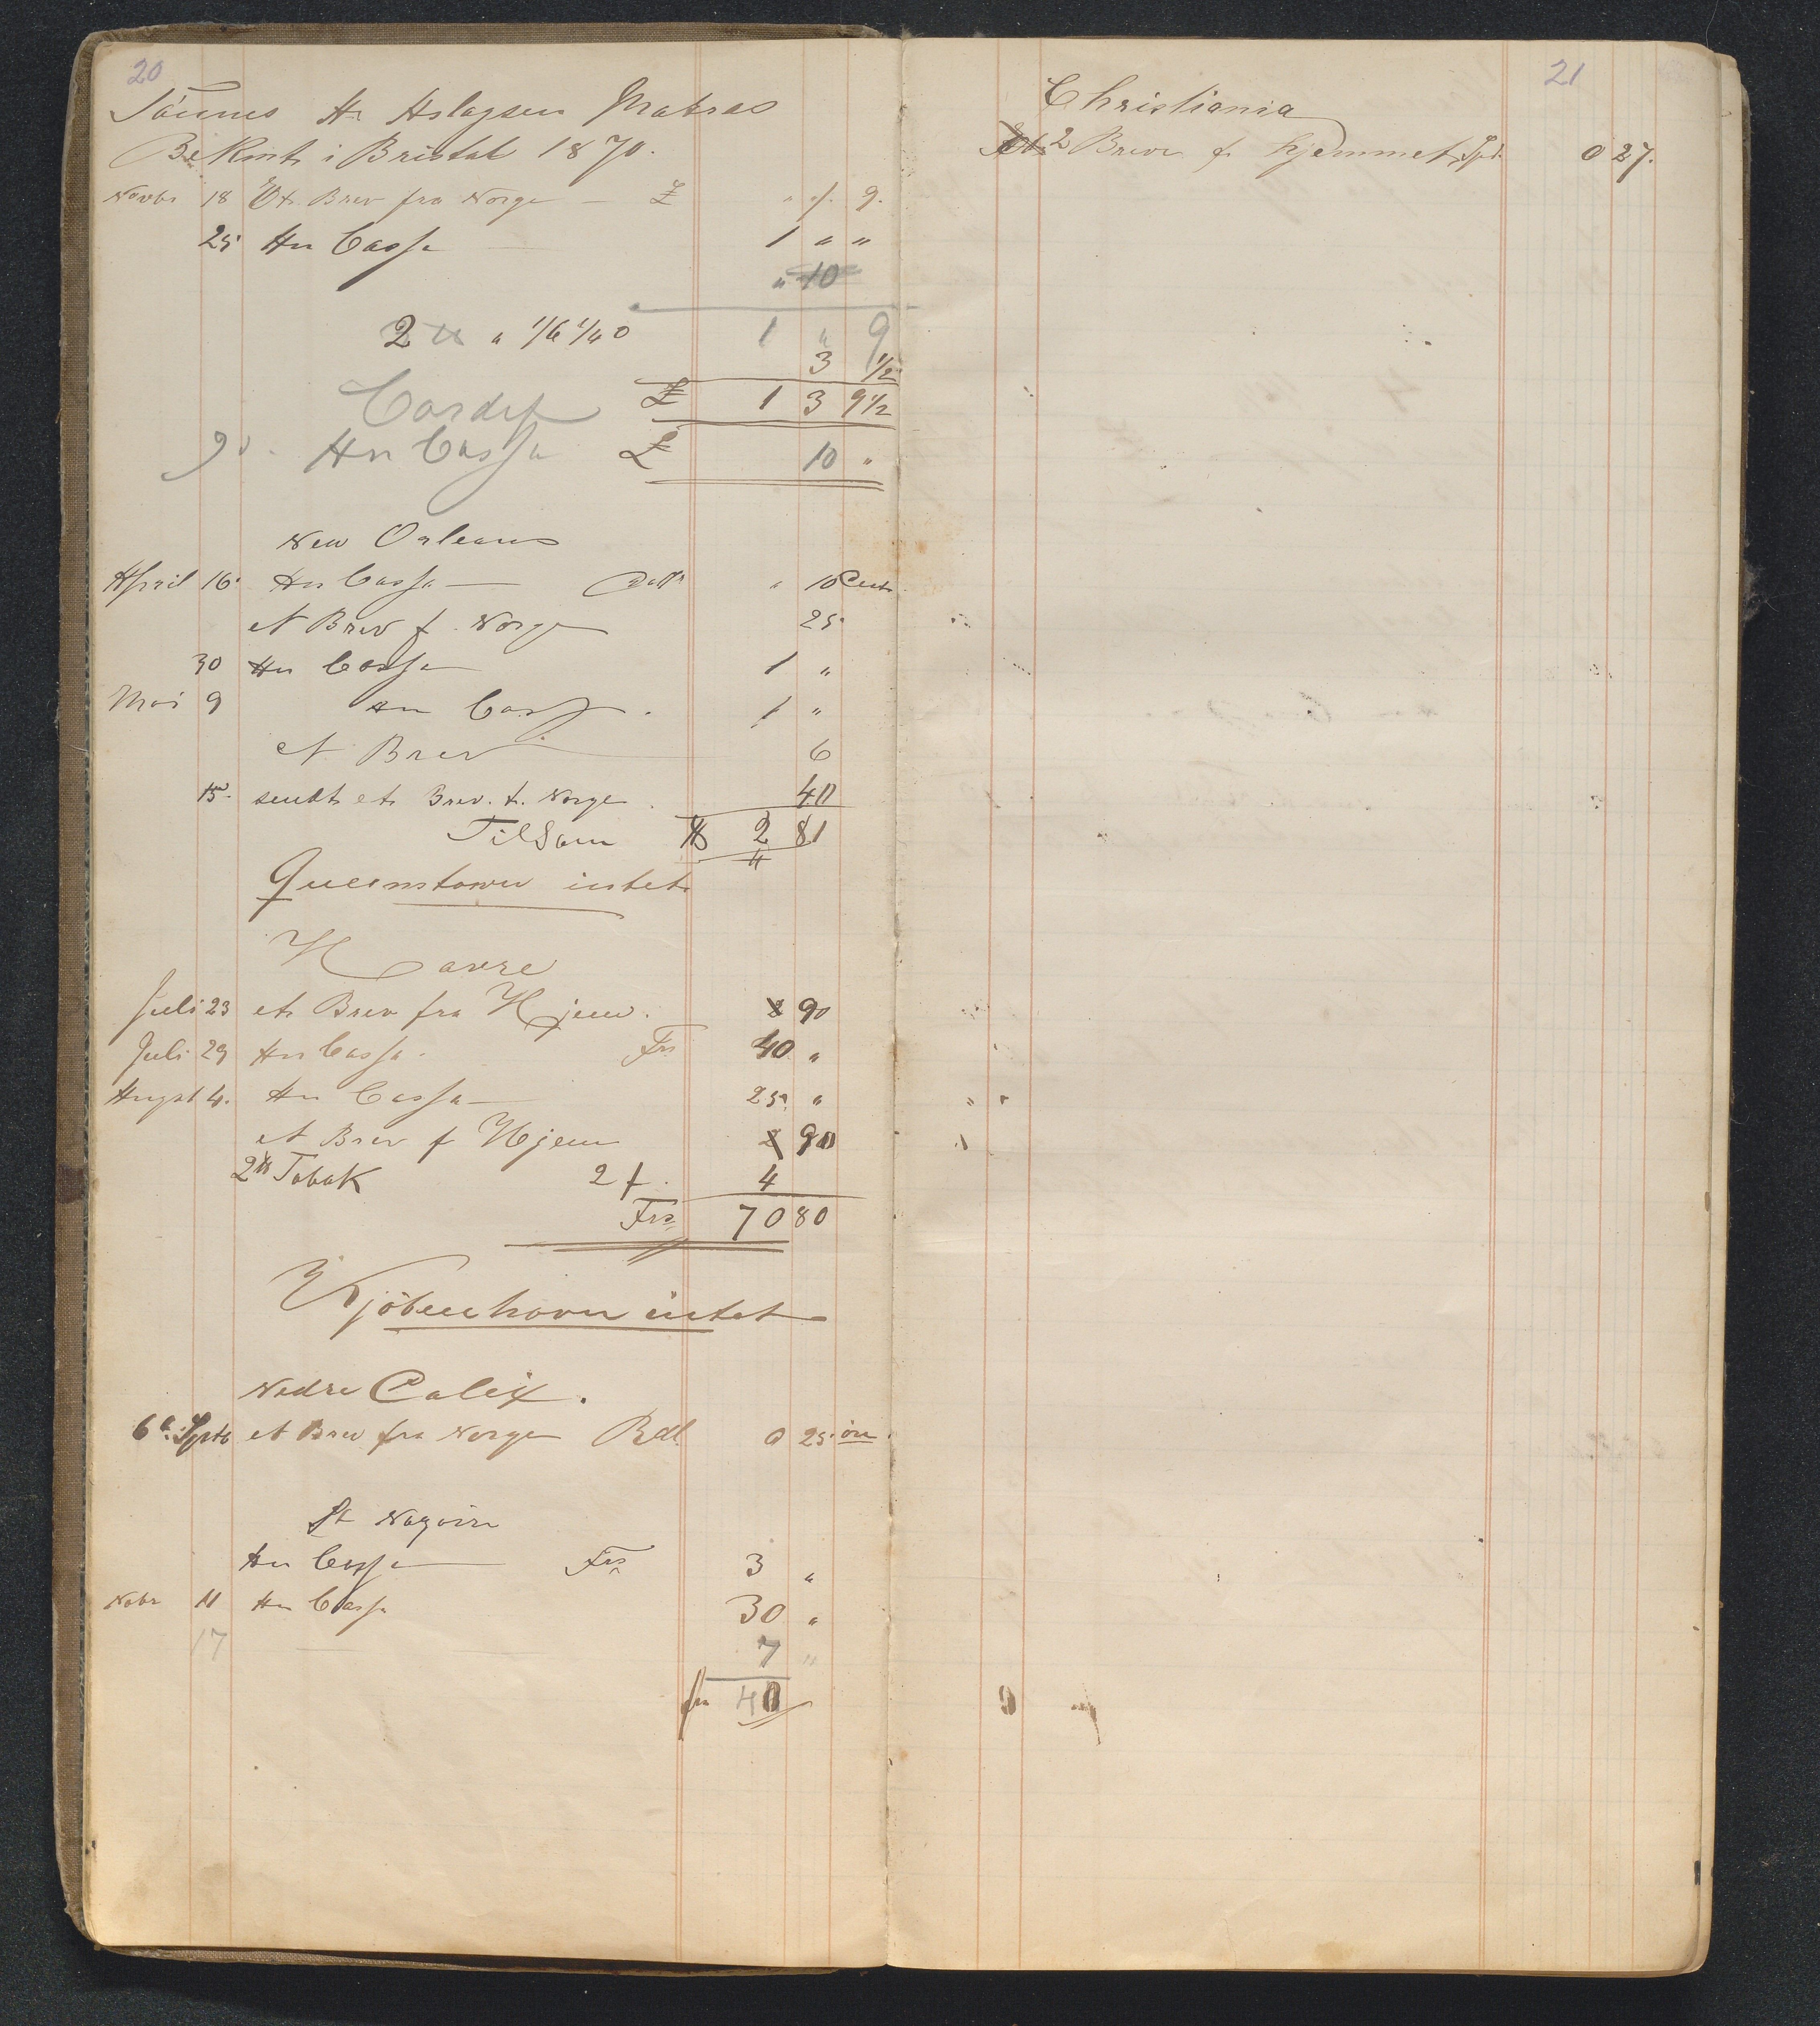 20
Tönnes A. Aslagsen Matros
Bekmt i Bristol 1870.
Novbr 18 Et Brev fra Norge — £ " " 9.
25 An Cassa 1 " "
" 10
2 ℔ a 1/6 1/4 0 1 " 9
3 1/2
£ 1 3 9 1/2
Cardif
An Cassa £ 10 "
New Orleans
April 16. An Cassa — Doll " 10 Cent
et Brev f. Norge 25
30 An Cassa 1 "
Mai 9 An Cassa. 1 "
et Brev 6
15. sendt et Brev. t. Norge 40
Tilsam $ 2 81
Queenstown intet
Havre
Juli 23 et Brev fra Hjem. 90
Juli 29 An Cassa. Frs 40 "
Augst 4. An Cassa — 25 "
et Brev f Hjem 90
2 ℔ Tobak 2 f. 4
Frs 70 80
Kjöbenhavn intet
Nedre Calix.
6te Sptb et Brev fra Norge Rdl. 0 25 öre.
St Nazaire
An Cassa — Frs 3 "
Nobr 11 An Cassa 30 "
17 7 "
frs 40
21
Christiania
2 Breve f. hjemmet Spd. 0 27.